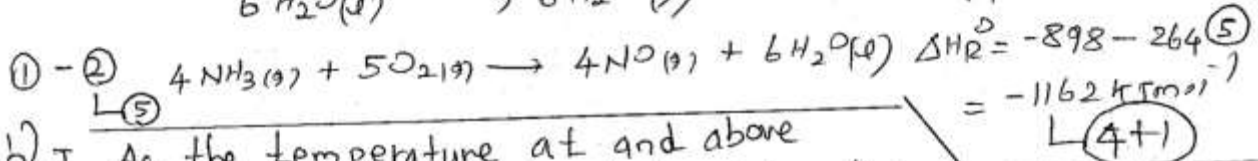 6 H₂O(l)
① - ② 4 NH₃(g) + 5O₂(g) → 4NO(g) + 6H₂O(l) ΔH_R° = -898 - 264 ⑤
└⑤ = -1162 kJmol⁻¹
└ 4+1
b) I As the temperature at and above